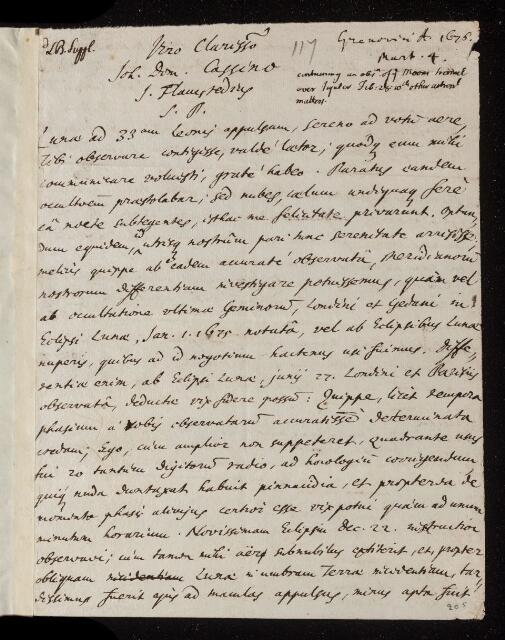 LB. Suppl.
Viro Clarissō
117
Grenovici A 1676.
Mart. 4.
Joh. Dom. Cassino
J. Flamstedius
S. P.
containing an obs: of Moons transit
over Jugulas Feb: 25 wth other astronl
matters.
Lunæ ad 33am leonis appulsum, sereno ad votū aere,
Tibi observare contigisse, valdè lætor; quodq eum mihi
communicare voluisti, gratè habeo. Paratus eandem
occultatm præstolabar; sed nubes, cælum undiquaq ferè
eâ nocte subtegentes, isthac me felicitate privarunt. Optan,
dum equidem, utrisq nostrûm pari tunc serenitate arrisisse:
melius quippe ab eâdem accuratè observatâ, Meridianorū
nostrorum differentiam investigare potuissemus, quàm vel
ab occultatione ultimæ Geminorū, Londini et Gedani in
Eclipsi Lunæ, Jan. 1. 1675 notatâ, vel ab Eclipsibus Lunæ
nuperis, quibus ad id negotium hactenus usi fuimus. Diffe,
rentiæ enim, ab Eclipsi Lunæ, junij 27. Londini et Parisijs
observatâ, deductæ vix fidere possū: Quippe, licèt tempora
phasium à vobis observatarū accuratissimè determinata
credam; Ego, cùm amplior non suppeteret, quadrante usus
fui 20 tantùm digitorū radio, ad horologiū corrigendum
quiq nuda duntaxat habuit pinnacidia, et proptereà de
momento phasis alicujus certior esse vix potui quàm ad unum
minutum horarium. Novissimam Eclipsin Dec. 22. instructior
observavi; cùm tamen mihi aër subnubilus extiterit, et, propter
obliquam Lunæ in umbram Terræ incidentiam, tar,
dissimus fuerit ejus ad maculas appulsus, minus apta fuit
205